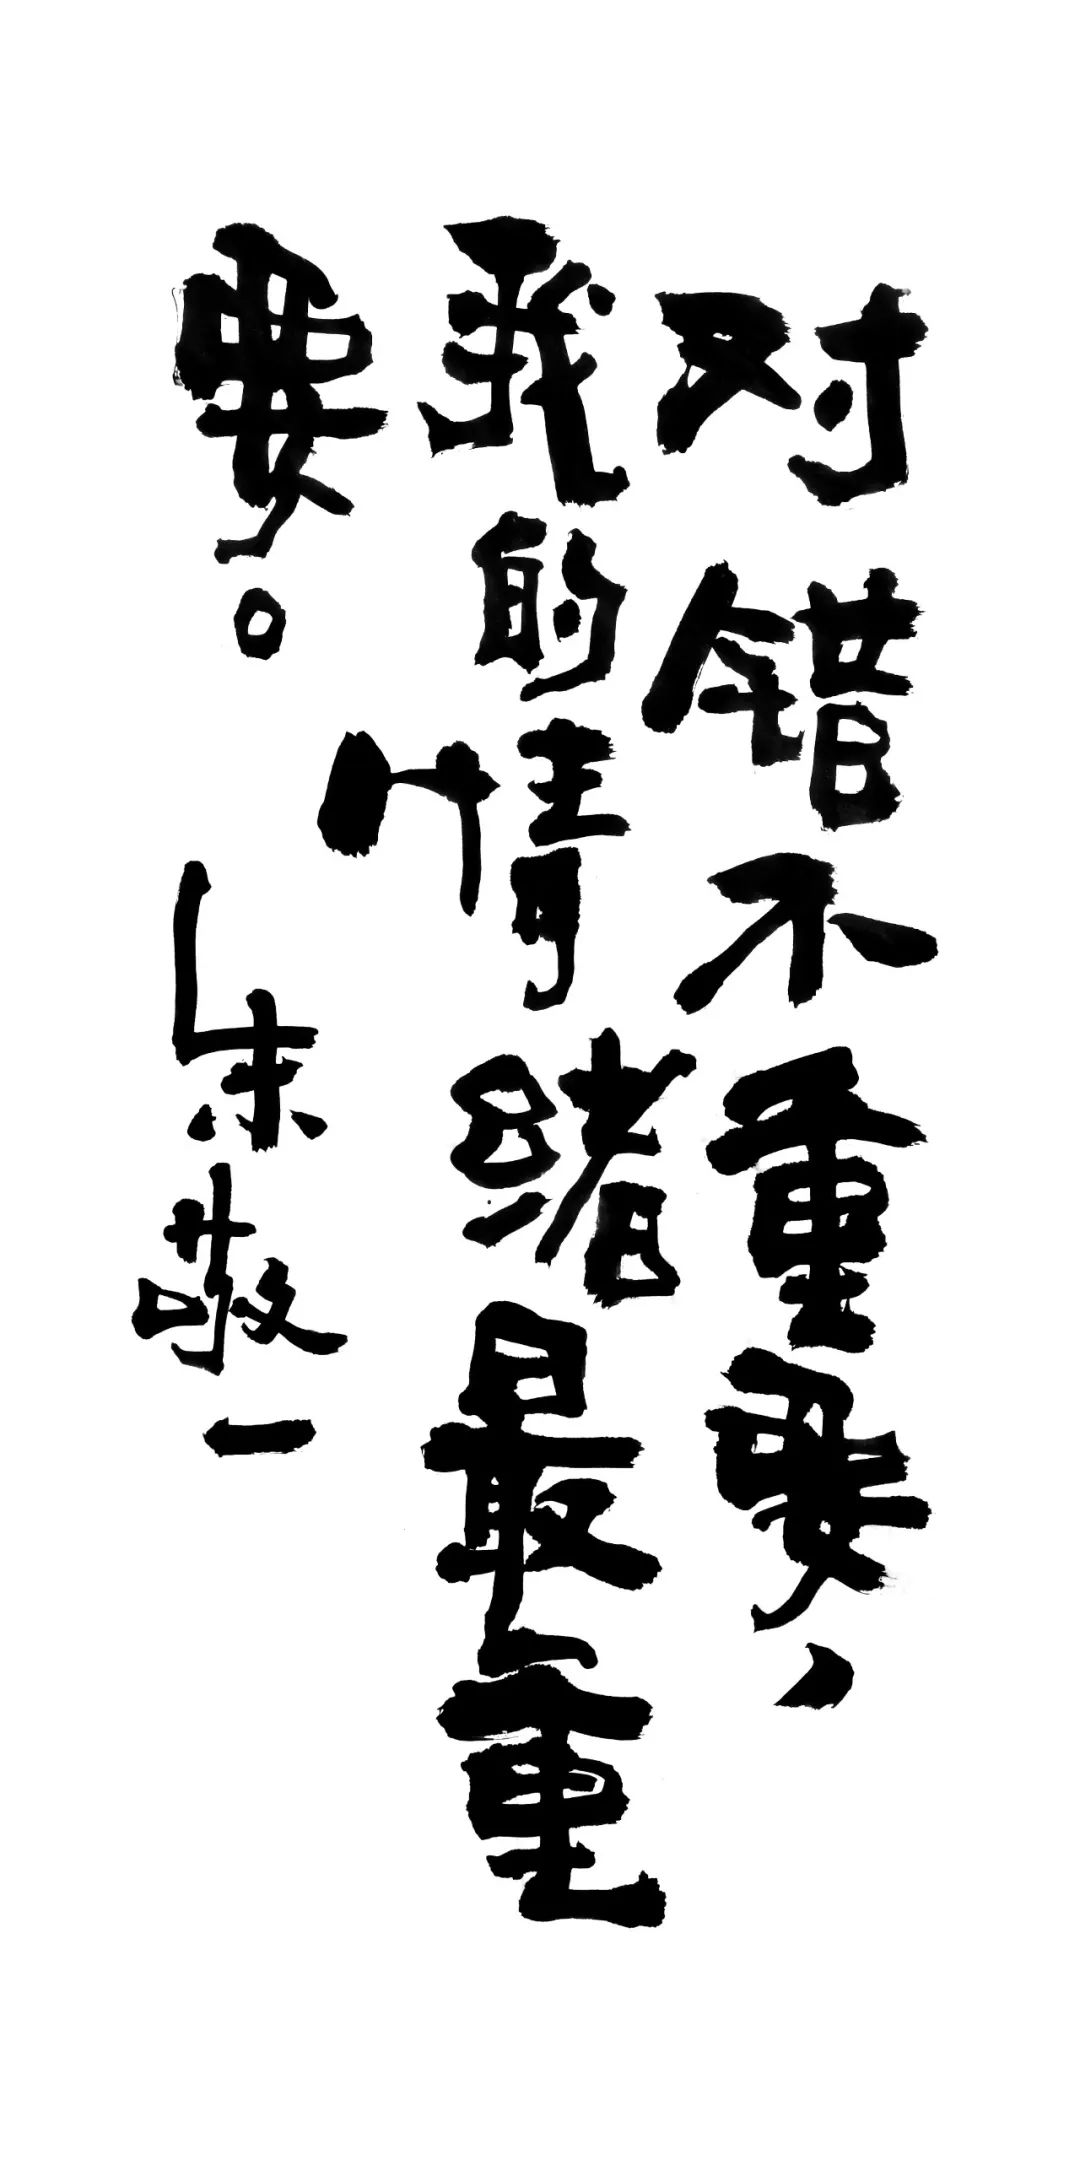 对错不重要、
我的情绪最重
要。
朱敬一